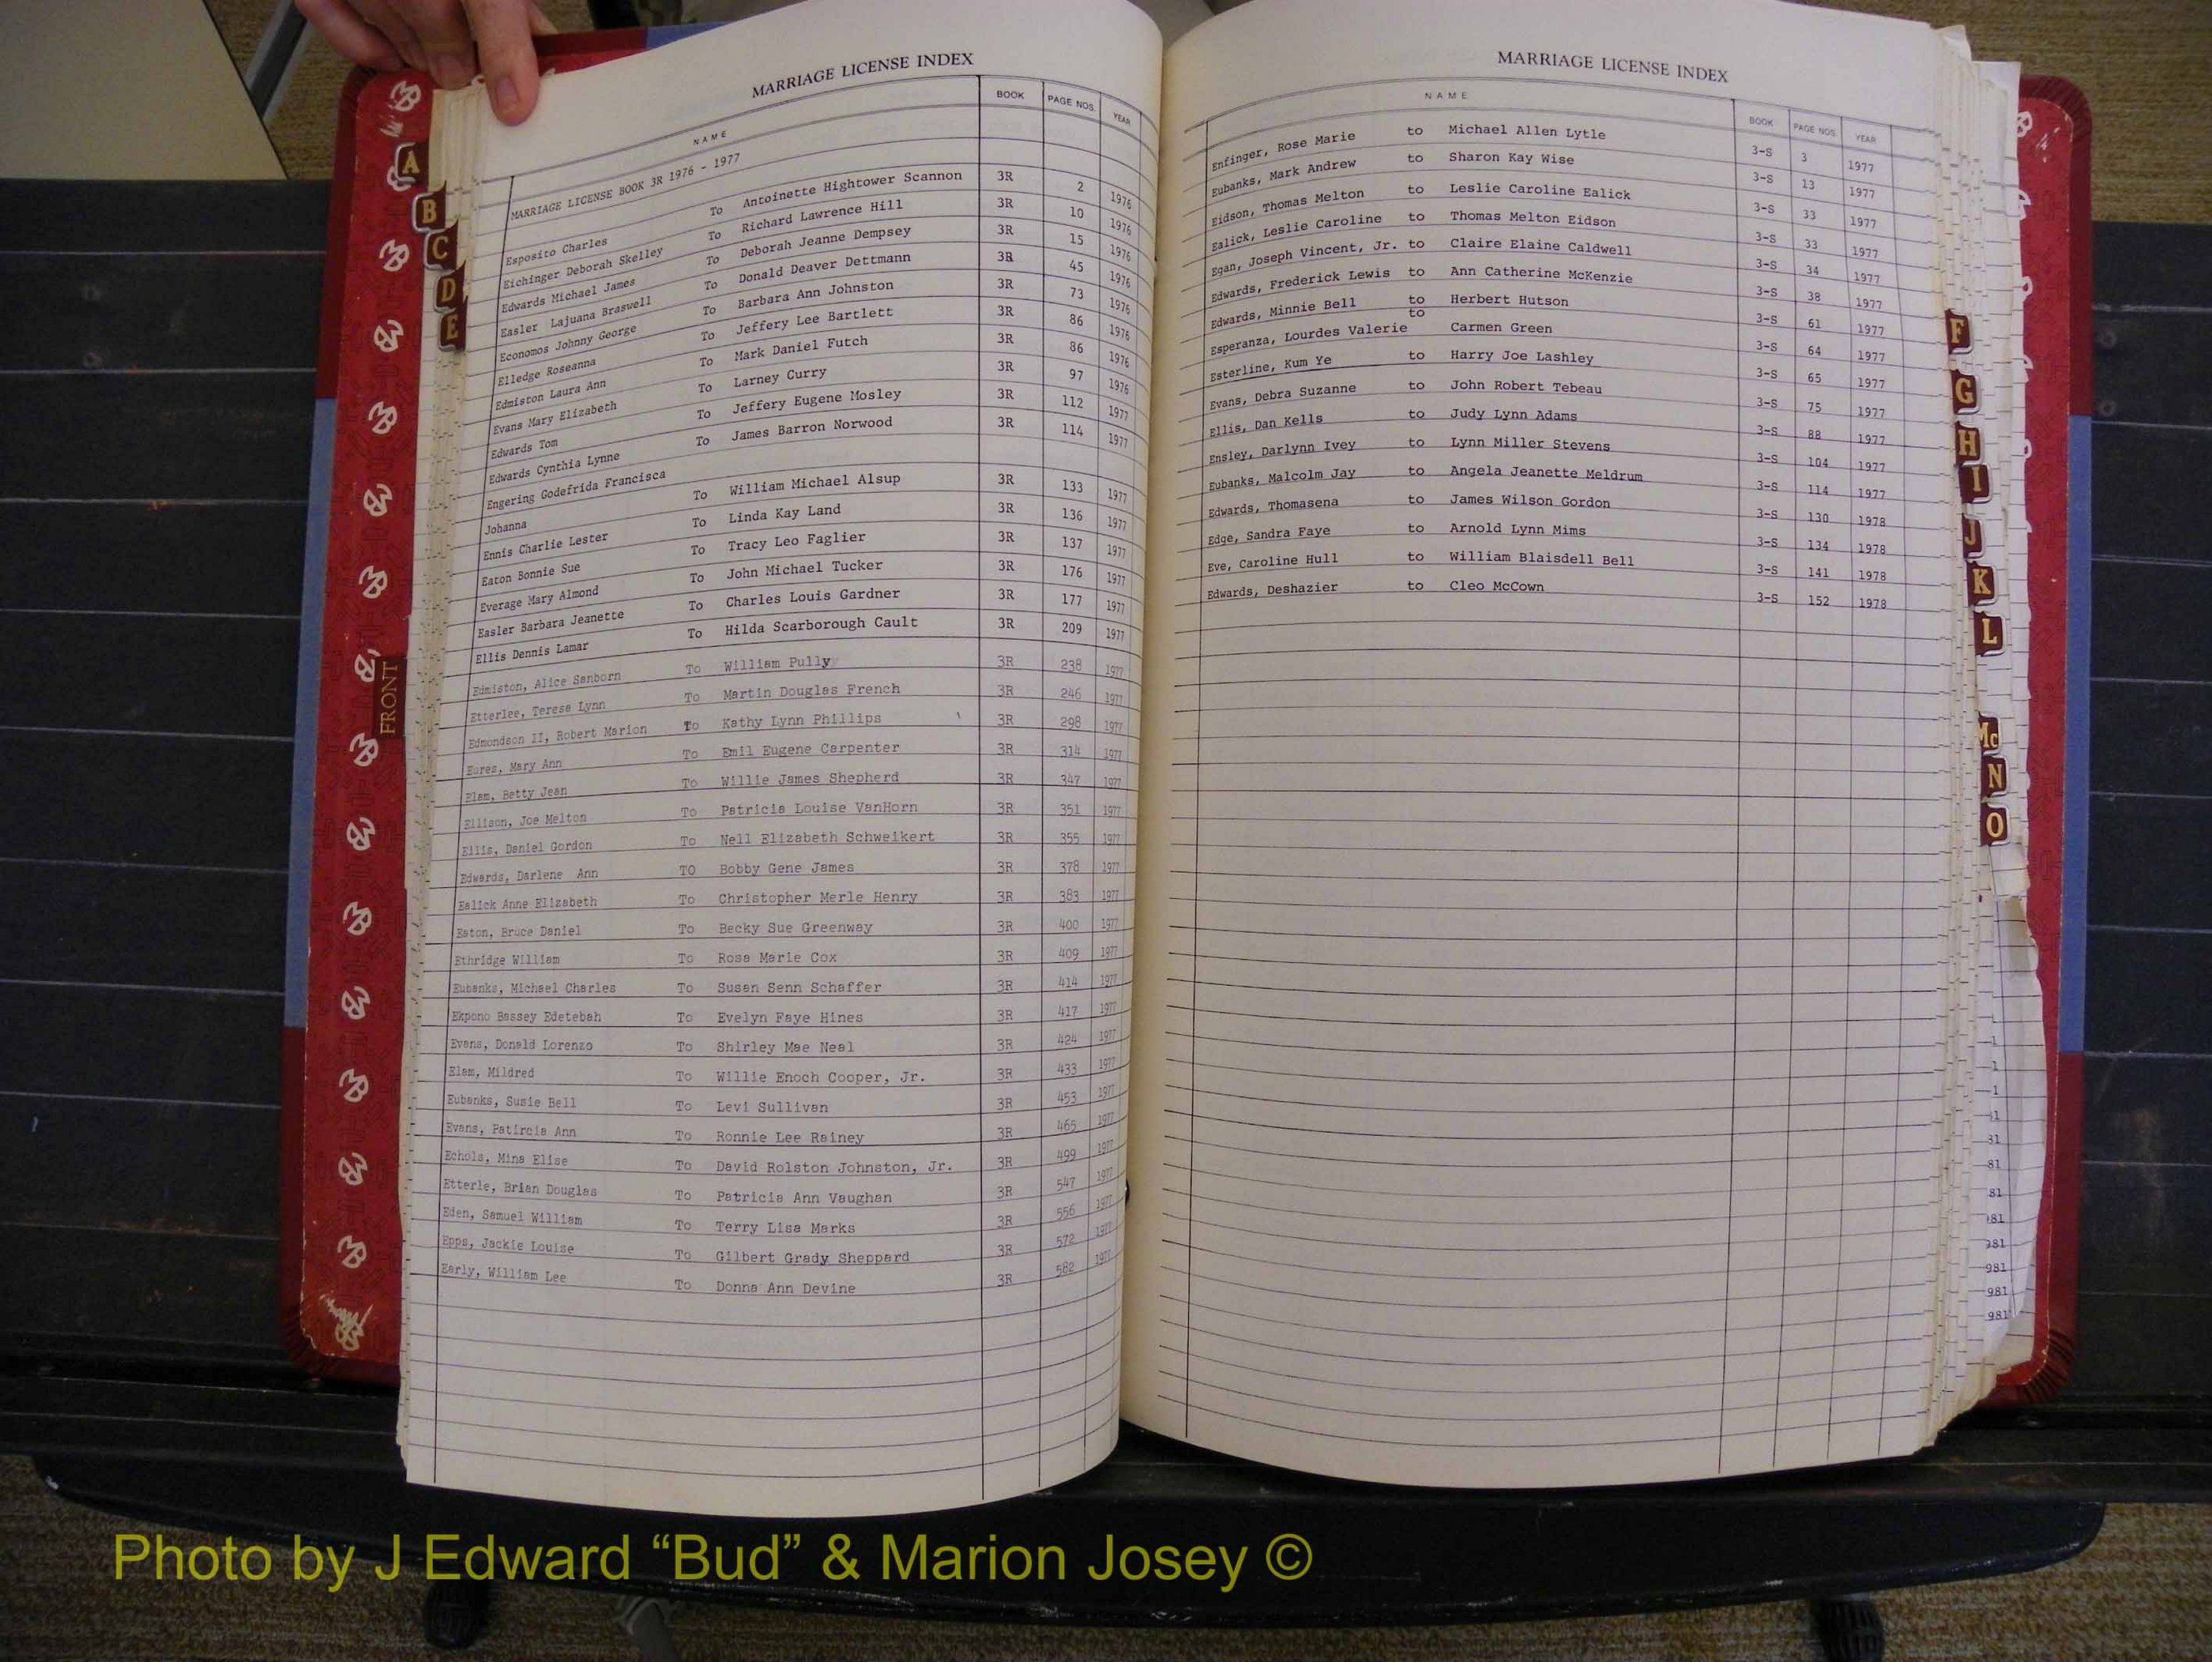 MARRIAGE LICENSE INDEX
NAME BOOK PAGE NOS. YEAR
MARRIAGE LICENSE BOOK 3R 1976 - 1977
Esposito Charles To Antoinette Hightower Scannon 3R 2 1976
Eichinger Deborah Skelley To Richard Lawrence Hill 3R 10 1976
Edwards Michael James To Deborah Jeanne Dempsey 3R 15 1976
Easler Lajuana Braswell To Donald Deaver Dettmann 3R 45 1976
Economos Johnny George To Barbara Ann Johnston 3R 73 1976
Elledge Roseanna To Jeffery Lee Bartlett 3R 86 1976
Edmiston Laura Ann To Mark Daniel Futch 3R 86 1976
Evans Mary Elizabeth To Larney Curry 3R 97 1976
Edwards Tom To Jeffery Eugene Mosley 3R 112 1977
Edwards Cynthia Lynne To James Barron Norwood 3R 114 1977
Engering Godefrida Francisca
Johanna To William Michael Alsup 3R 133 1977
Ennis Charlie Lester To Linda Kay Land 3R 136 1977
Eaton Bonnie Sue To Tracy Leo Faglier 3R 137 1977
Everage Mary Almond To John Michael Tucker 3R 176 1977
Easler Barbara Jeanette To Charles Louis Gardner 3R 177 1977
Ellis Dennis Lamar To Hilda Scarborough Cault 3R 209 1977
Edmiston, Alice Sanborn To William Pully 3R 238 1977
Etterlee, Teresa Lynn To Martin Douglas French 3R 246 1977
Edmondson II, Robert Marion To Kathy Lynn Phillips 3R 298 1977
Eures, Mary Ann To Emil Eugene Carpenter 3R 314 1977
Elam, Betty Jean To Willie James Shepherd 3R 347 1977
Ellison, Joe Melton To Patricia Louise VanHorn 3R 351 1977
Ellis, Daniel Gordon To Nell Elizabeth Schweikert 3R 355 1977
Edwards, Darlene Ann TO Bobby Gene James 3R 378 1977
Ealick Anne Elizabeth To Christopher Merle Henry 3R 383 1977
Eaton, Bruce Daniel To Becky Sue Greenway 3R 400 1977
Ethridge William To Rosa Marie Cox 3R 409 1977
Eubanks, Michael Charles To Susan Senn Schaffer 3R 414 1977
Ekpono Bassey Edetebah To Evelyn Faye Hines 3R 417 1977
Evans, Donald Lorenzo To Shirley Mae Neal 3R 424 1977
Elam, Mildred To Willie Enoch Cooper, Jr. 3R 433 1977
Eubanks, Susie Bell To Levi Sullivan 3R 453 1977
Evans, Patircia Ann To Ronnie Lee Rainey 3R 465 1977
Echols, Mina Elise To David Rolston Johnston, Jr. 3R 499 1977
Etterle, Brian Douglas To Patricia Ann Vaughan 3R 547 1977
Eden, Samuel William To Terry Lisa Marks 3R 556 1977
Epps, Jackie Louise To Gilbert Grady Sheppard 3R 572 1977
Early, William Lee To Donna Ann Devine 3R 582 1977
MARRIAGE LICENSE INDEX
NAME BOOK PAGE NOS. YEAR
Enfinger, Rose Marie to Michael Allen Lytle 3-S 3 1977
Eubanks, Mark Andrew to Sharon Kay Wise 3-S 13 1977
Eidson, Thomas Melton to Leslie Caroline Ealick 3-S 33 1977
Ealick, Leslie Caroline to Thomas Melton Eidson 3-S 33 1977
Egan, Joseph Vincent, Jr. to Claire Elaine Caldwell 3-S 34 1977
Edwards, Frederick Lewis to Ann Catherine McKenzie 3-S 38 1977
Edwards, Minnie Bell to Herbert Hutson 3-S 61 1977
Esperanza, Lourdes Valerie to Carmen Green 3-S 64 1977
Esterline, Kum Ye to Harry Joe Lashley 3-S 65 1977
Evans, Debra Suzanne to John Robert Tebeau 3-S 75 1977
Ellis, Dan Kells to Judy Lynn Adams 3-S 88 1977
Ensley, Darlynn Ivey to Lynn Miller Stevens 3-S 104 1977
Eubanks, Malcolm Jay to Angela Jeanette Meldrum 3-S 114 1977
Edwards, Thomasena to James Wilson Gordon 3-S 130 1978
Edge, Sandra Faye to Arnold Lynn Mims 3-S 134 1978
Eve, Caroline Hull to William Blaisdell Bell 3-S 141 1978
Edwards, Deshazier to Cleo McCown 3-S 152 1978
A
B
C
D
E
FRONT
F
G
H
I
J
K
L
Mc
N
O
1
1
1
81
81
981
981
981
981
Photo by J Edward “Bud” & Marion Josey ©